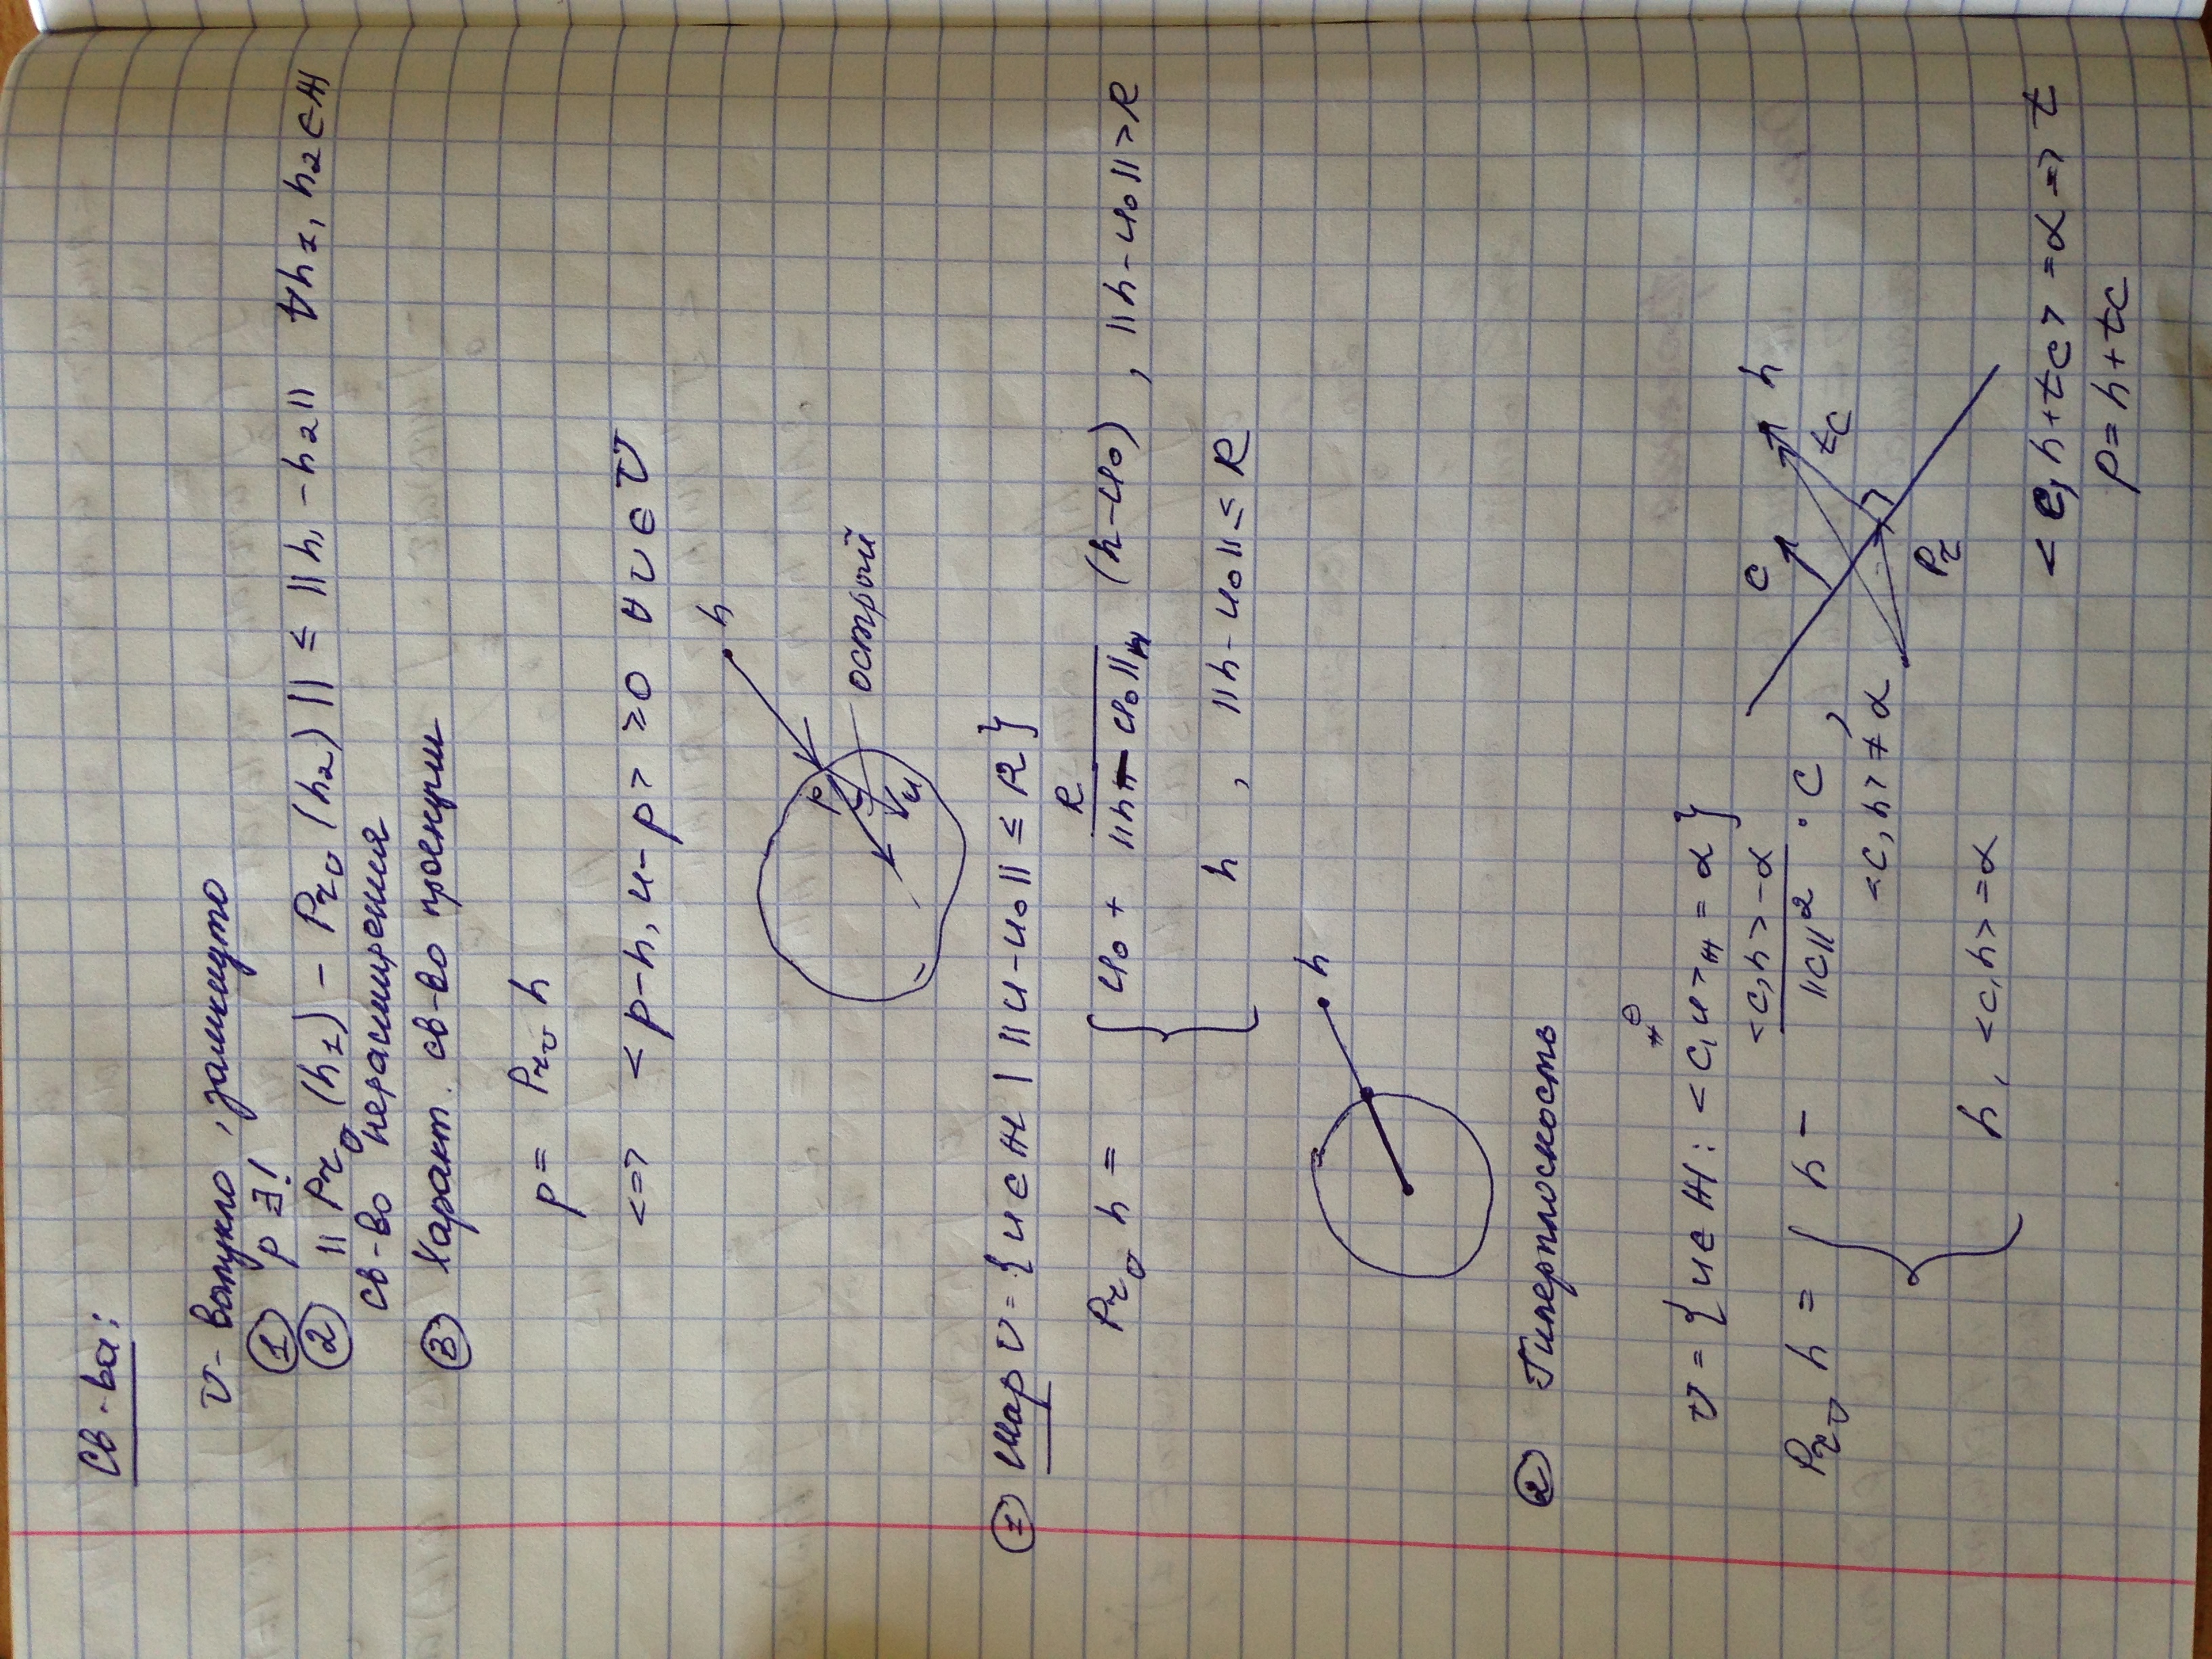 Св-ва:
U - выпукло, замкнуто
① p ∃!
② || Pr_U (h_1) - Pr_U (h_2) || ≤ || h_1 - h_2 || ∀ h_1, h_2 ∈ H
св-во нерасширения
③ Характ. св-во проекции
p = Pr_U h
<=> < p-h, u-p > ≥ 0 ∀ u ∈ U
h
p
u
острый
① Шар U = { u ∈ H | || u - u_0 || ≤ R }
Pr_U h = { u_0 + R / ||h - u_0||_H (h - u_0) , || h - u_0 || > R
h , || h - u_0 || ≤ R
h
② Гиперплоскость
≠0
U = { u ∈ H : < c, u >_H = α }
Pr_U h = { h - (<c, h> - α) / ||c||² · c , <c, h> ≠ α
h , <c, h> = α
c
h
tc
Pr
< c, h + tc > = α => t
p = h + tc